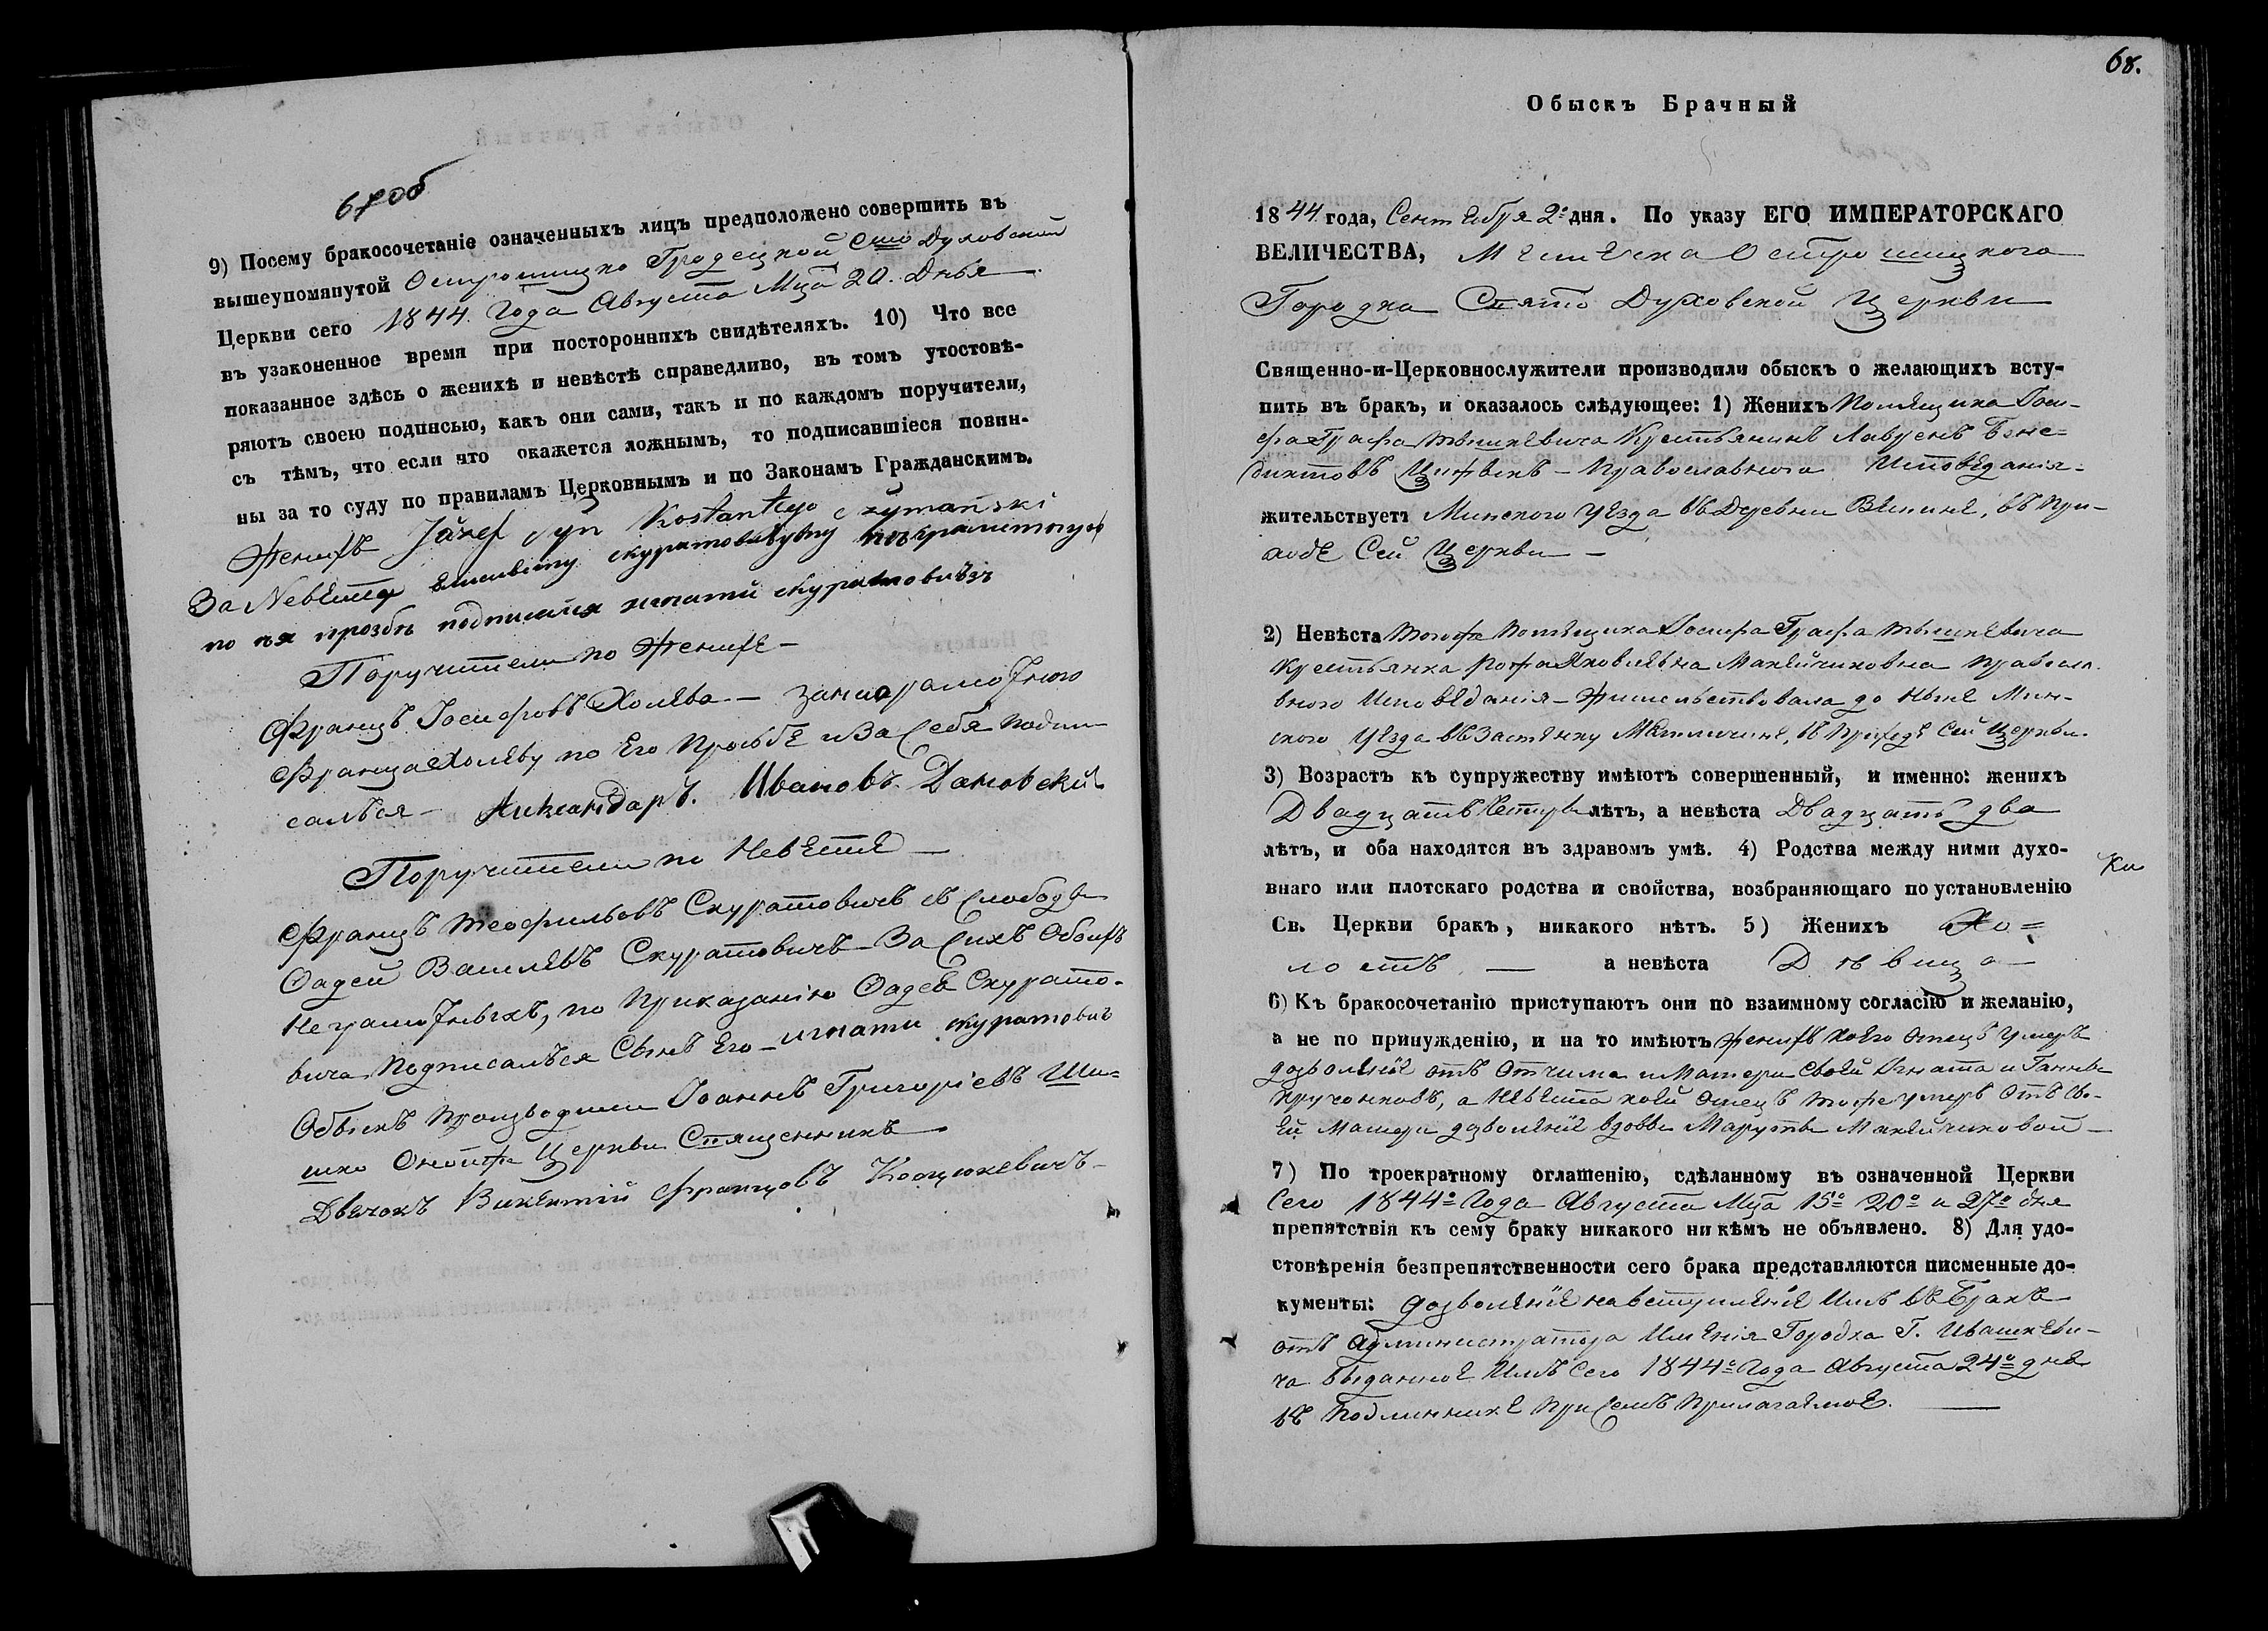 67об
9) Посему бракосочетаніе означенныхъ лицъ предположено совершить въ
вышеупомянутой Острошицко Гродецкой Свято Духовской
Церкви сего 1844. Года Августа Мца 20. Дньа
въ узаконенное время при постороннихъ свидѣтеляхъ. 10) Что все
показанное здѣсь о женихѣ и невѣстѣ справедливо, въ томъ утостовѣ-
ряютъ своею подписью, какъ они сами, такъ и по каждомъ поручители,
съ тѣмъ, что если что окажется ложнымъ, то подписавшіеся повин-
ны за то суду по правиламъ Церковнымъ и по Законамъ Гражданскимъ.
Женихъ Józef syn Kostantego
За Невѣсту скуратовичувну неграмотную
по ея прозбѣ подписался игнатий скуратовичъ
Поручители по Женихе —
Францъ Іосифовъ Холява — за неграмотного
Франца Холяву по Его Просьбе и За Себя подпи
салься — Александаръ. Ивановъ. Дановскій
Поручители по Невесте —
Францъ Теофильовъ Скуратовичъ съ Слободы
Фадей Василевъ Скуратовичъ — За Сихъ Обоихъ
Неграмотныхъ, по Приказанію Фадея Скурато-
вича Подписалься Сынъ Его — игнати скуратович
Обыскъ Производили Іоаннъ Григоріевъ Ши=
шко Оной Церкви Священникъ
Дьячокъ Викентій Францовъ Коцюкевичъ —
68.
Обыскъ Брачный
1844 года, Сентебря 2о дня. По указу ЕГО ИМПЕРАТОРСКАГО
ВЕЛИЧЕСТВА, Местечка Острошицкого
Городка Свято Духовской Церкви
Священно-и-Церковнослужители производили обыскъ о желающихъ всту-
пить въ бракъ, и оказалось слѣдующее: 1) Женихъ Помещика Іоси-
фа Графа Тышкевича Крестьянинъ Лавренъ Бэне=
диктовъ — Православного Исповеданія —
жительствуетъ Минского Уезда въ Деревни Вяпине, въ При-
ходе Сей Церкви —
2) Невѣста Тогожъ Помещика Іосифа Графа Тышкевича
Крестьянка Яковлевна Макейчиковна Правосла
вного Исповеданія — Жительствовала до Ныне Мин-
ского Уезда въ Застенку , въ Приходе Сей Церкви.
3) Возрастъ къ супружеству имѣютъ совершенный, и именно: женихъ
Двадцать Четыре лѣтъ, а невѣста Двадцать два
лѣтъ, и оба находятся въ здравомъ умѣ. 4) Родства между ними духо-
внаго или плотскаго родства и свойства, возбраняющаго по установленію
Св. Церкви бракъ, никакого нѣтъ. 5) Женихъ Хо=
лостъ — а невѣста Дѣвица —
6) Къ бракосочетанію приступаютъ они по взаимному согласію и желанію,
а не по принужденію, и на то имѣютъ Женихъ коего Отецъ Умеръ
дозволеніе отъ Отчима и Матери Своей Игната и Ганны
, а Невеста коей Отецъ тоже умеръ Отъ Сво-
ей Матери дозволеніе вдовы Маруты Макейчиковой —
7) По троекратному оглашенію, сдѣланному въ означенной Церкви
Сего 1844о Года Августа Мца 15о 20о и 27о дня
препятствія къ сему браку никакого ни кѣмъ не объявлено. 8) Для удо-
стовѣренія безпрепятственности сего брака представляются писменные до-
кументы: дозволеніе на вступленіе Имъ въ Бракъ
отъ Администратора Именія Городка Г. Ивашкеви-
ча выданное Имъ Сего 1844о Года Августа 24о дня
въ Подлиннике При Семъ Прилагаемое. —